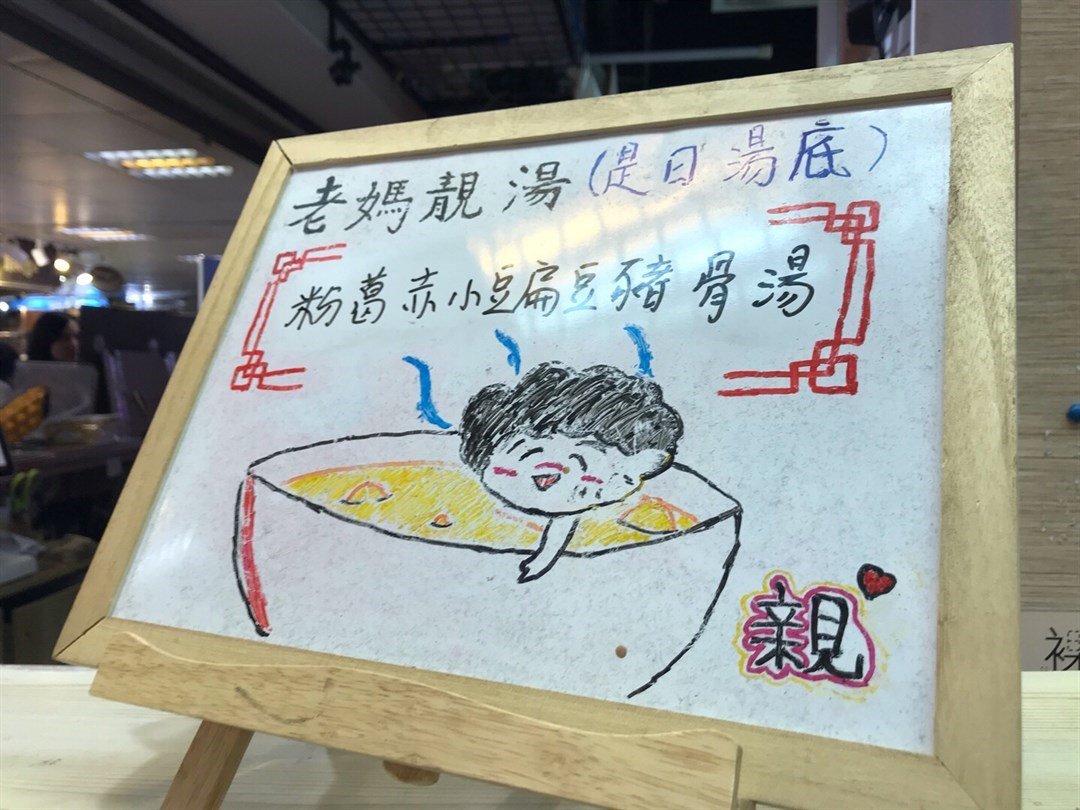 老媽靚湯(是日湯底)
粉葛赤小豆扁豆豬骨湯
親